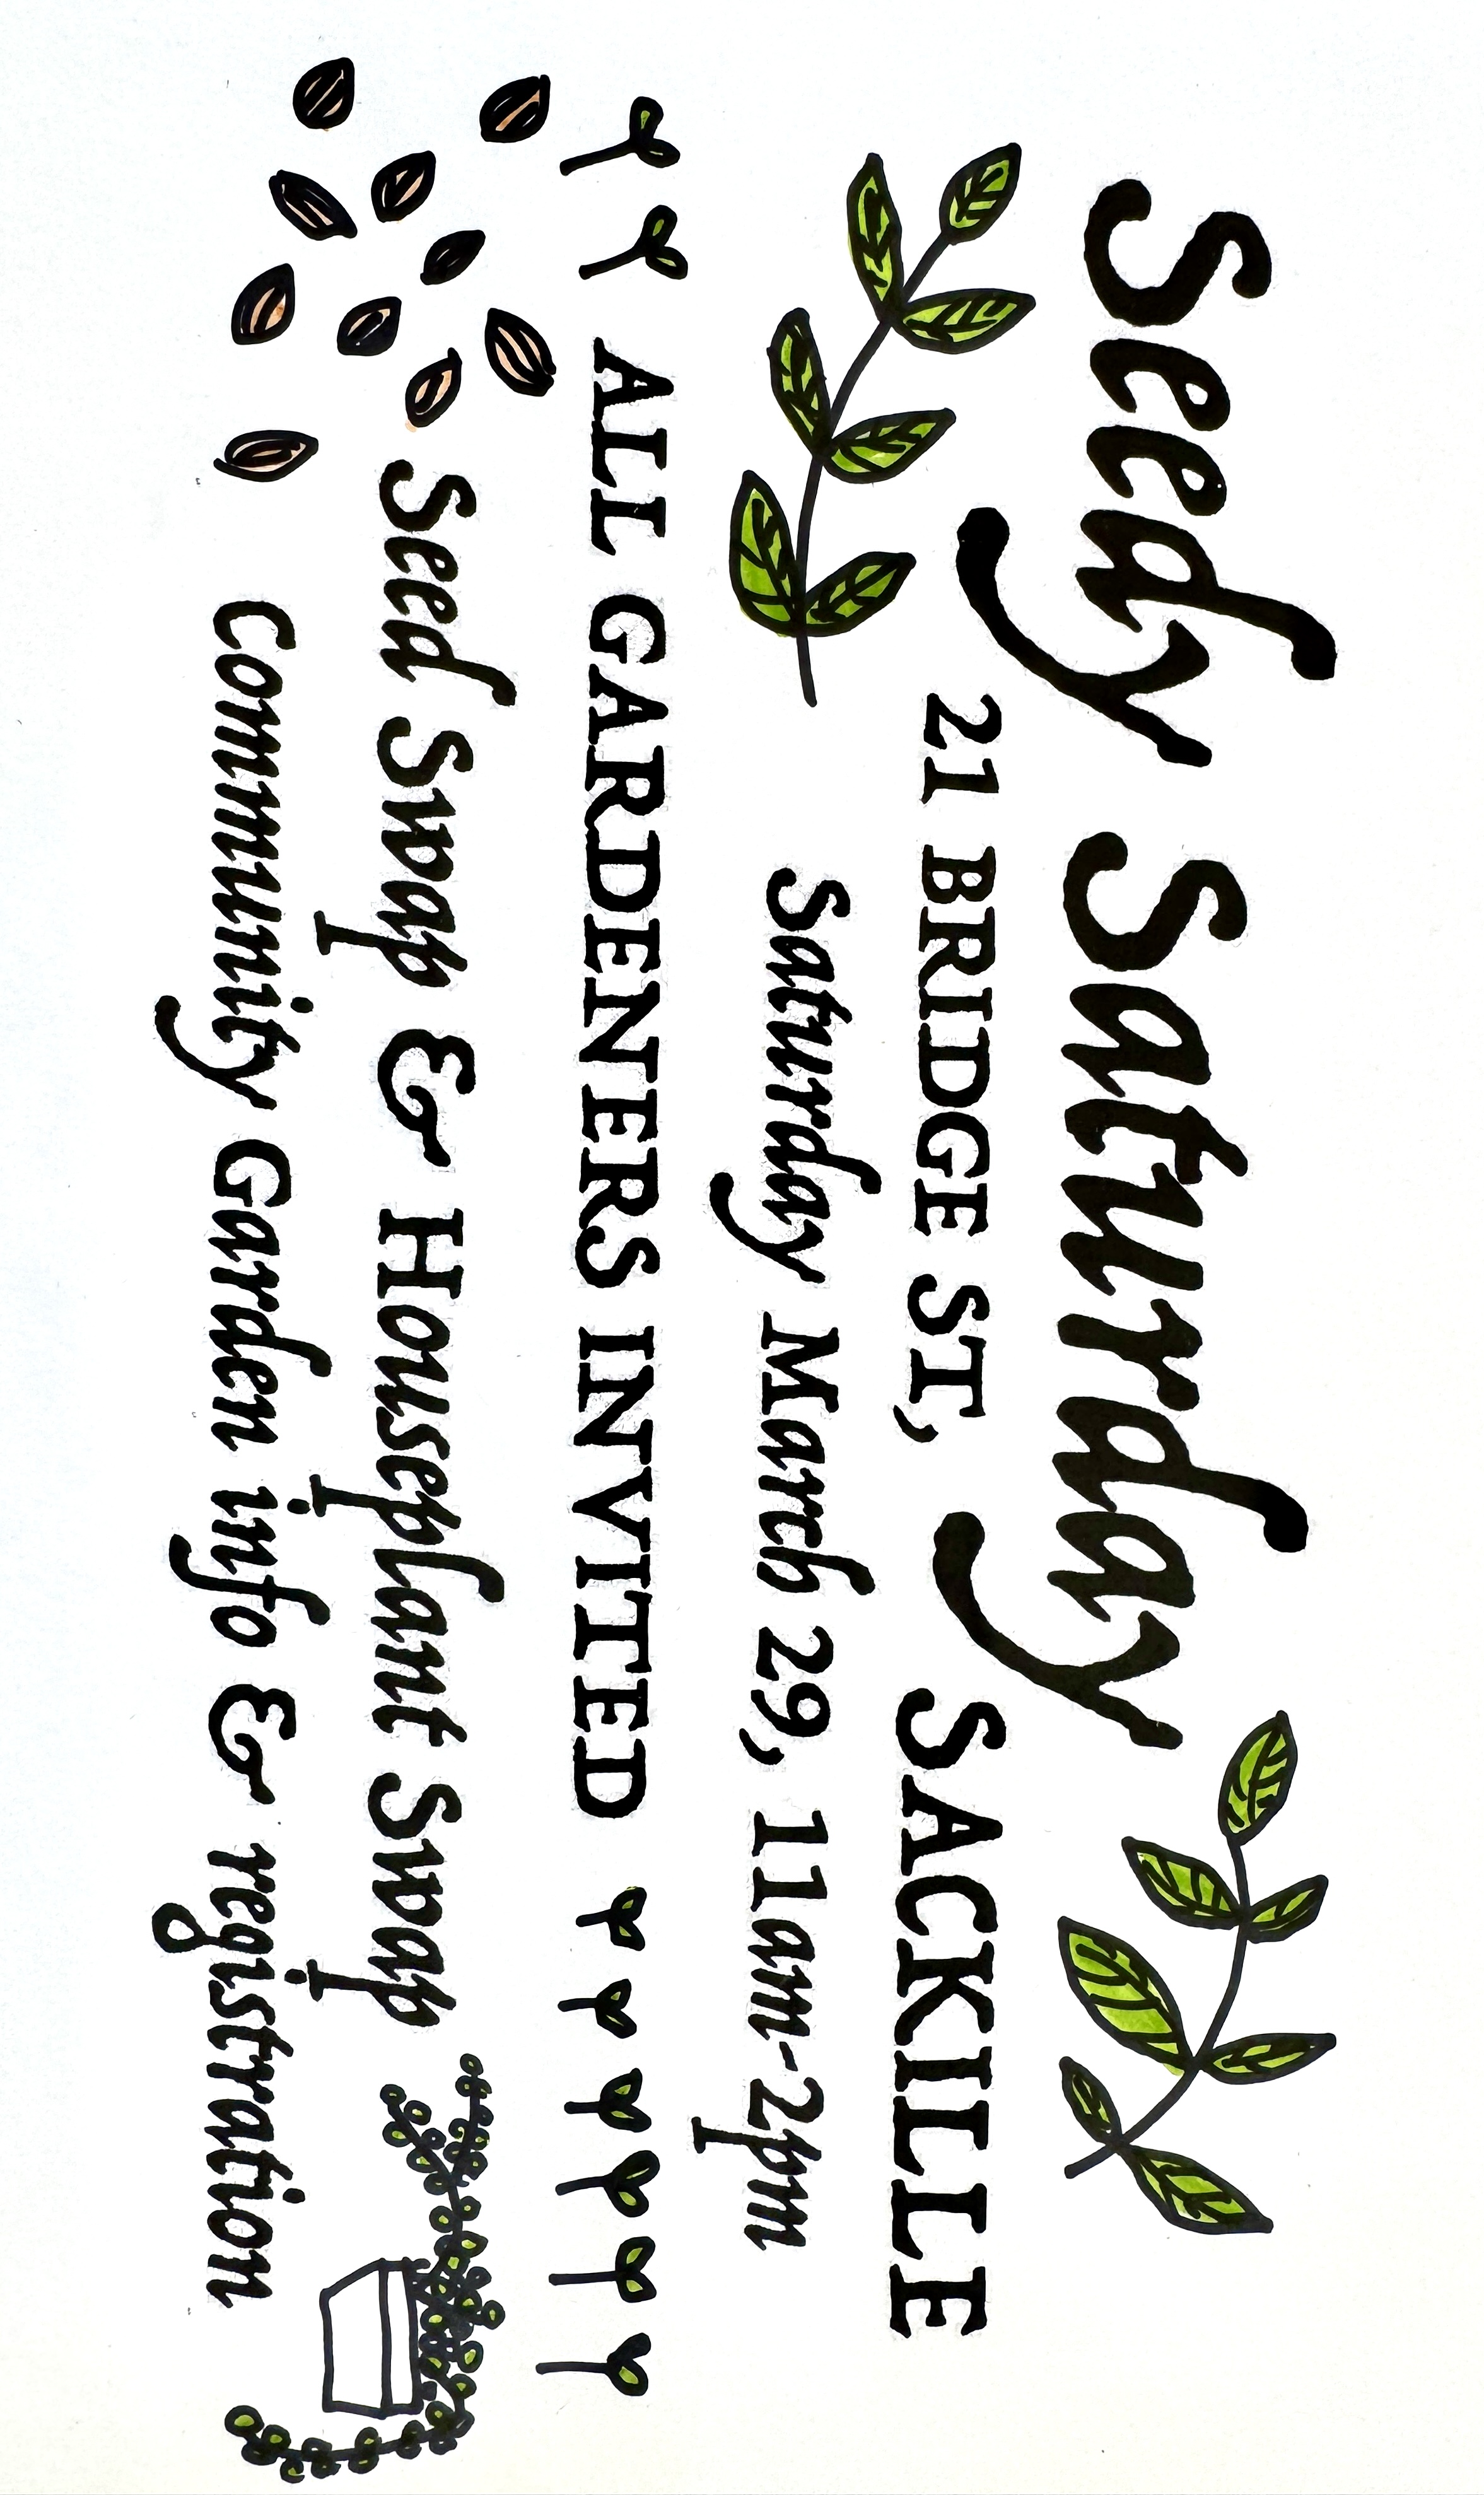 Seedy Saturday
21 BRIDGE ST, SACKILLE
Saturday March 29, 11am-2pm
ALL GARDENERS INVITED
Seed Swap & Houseplant Swap
Community Garden info & registration